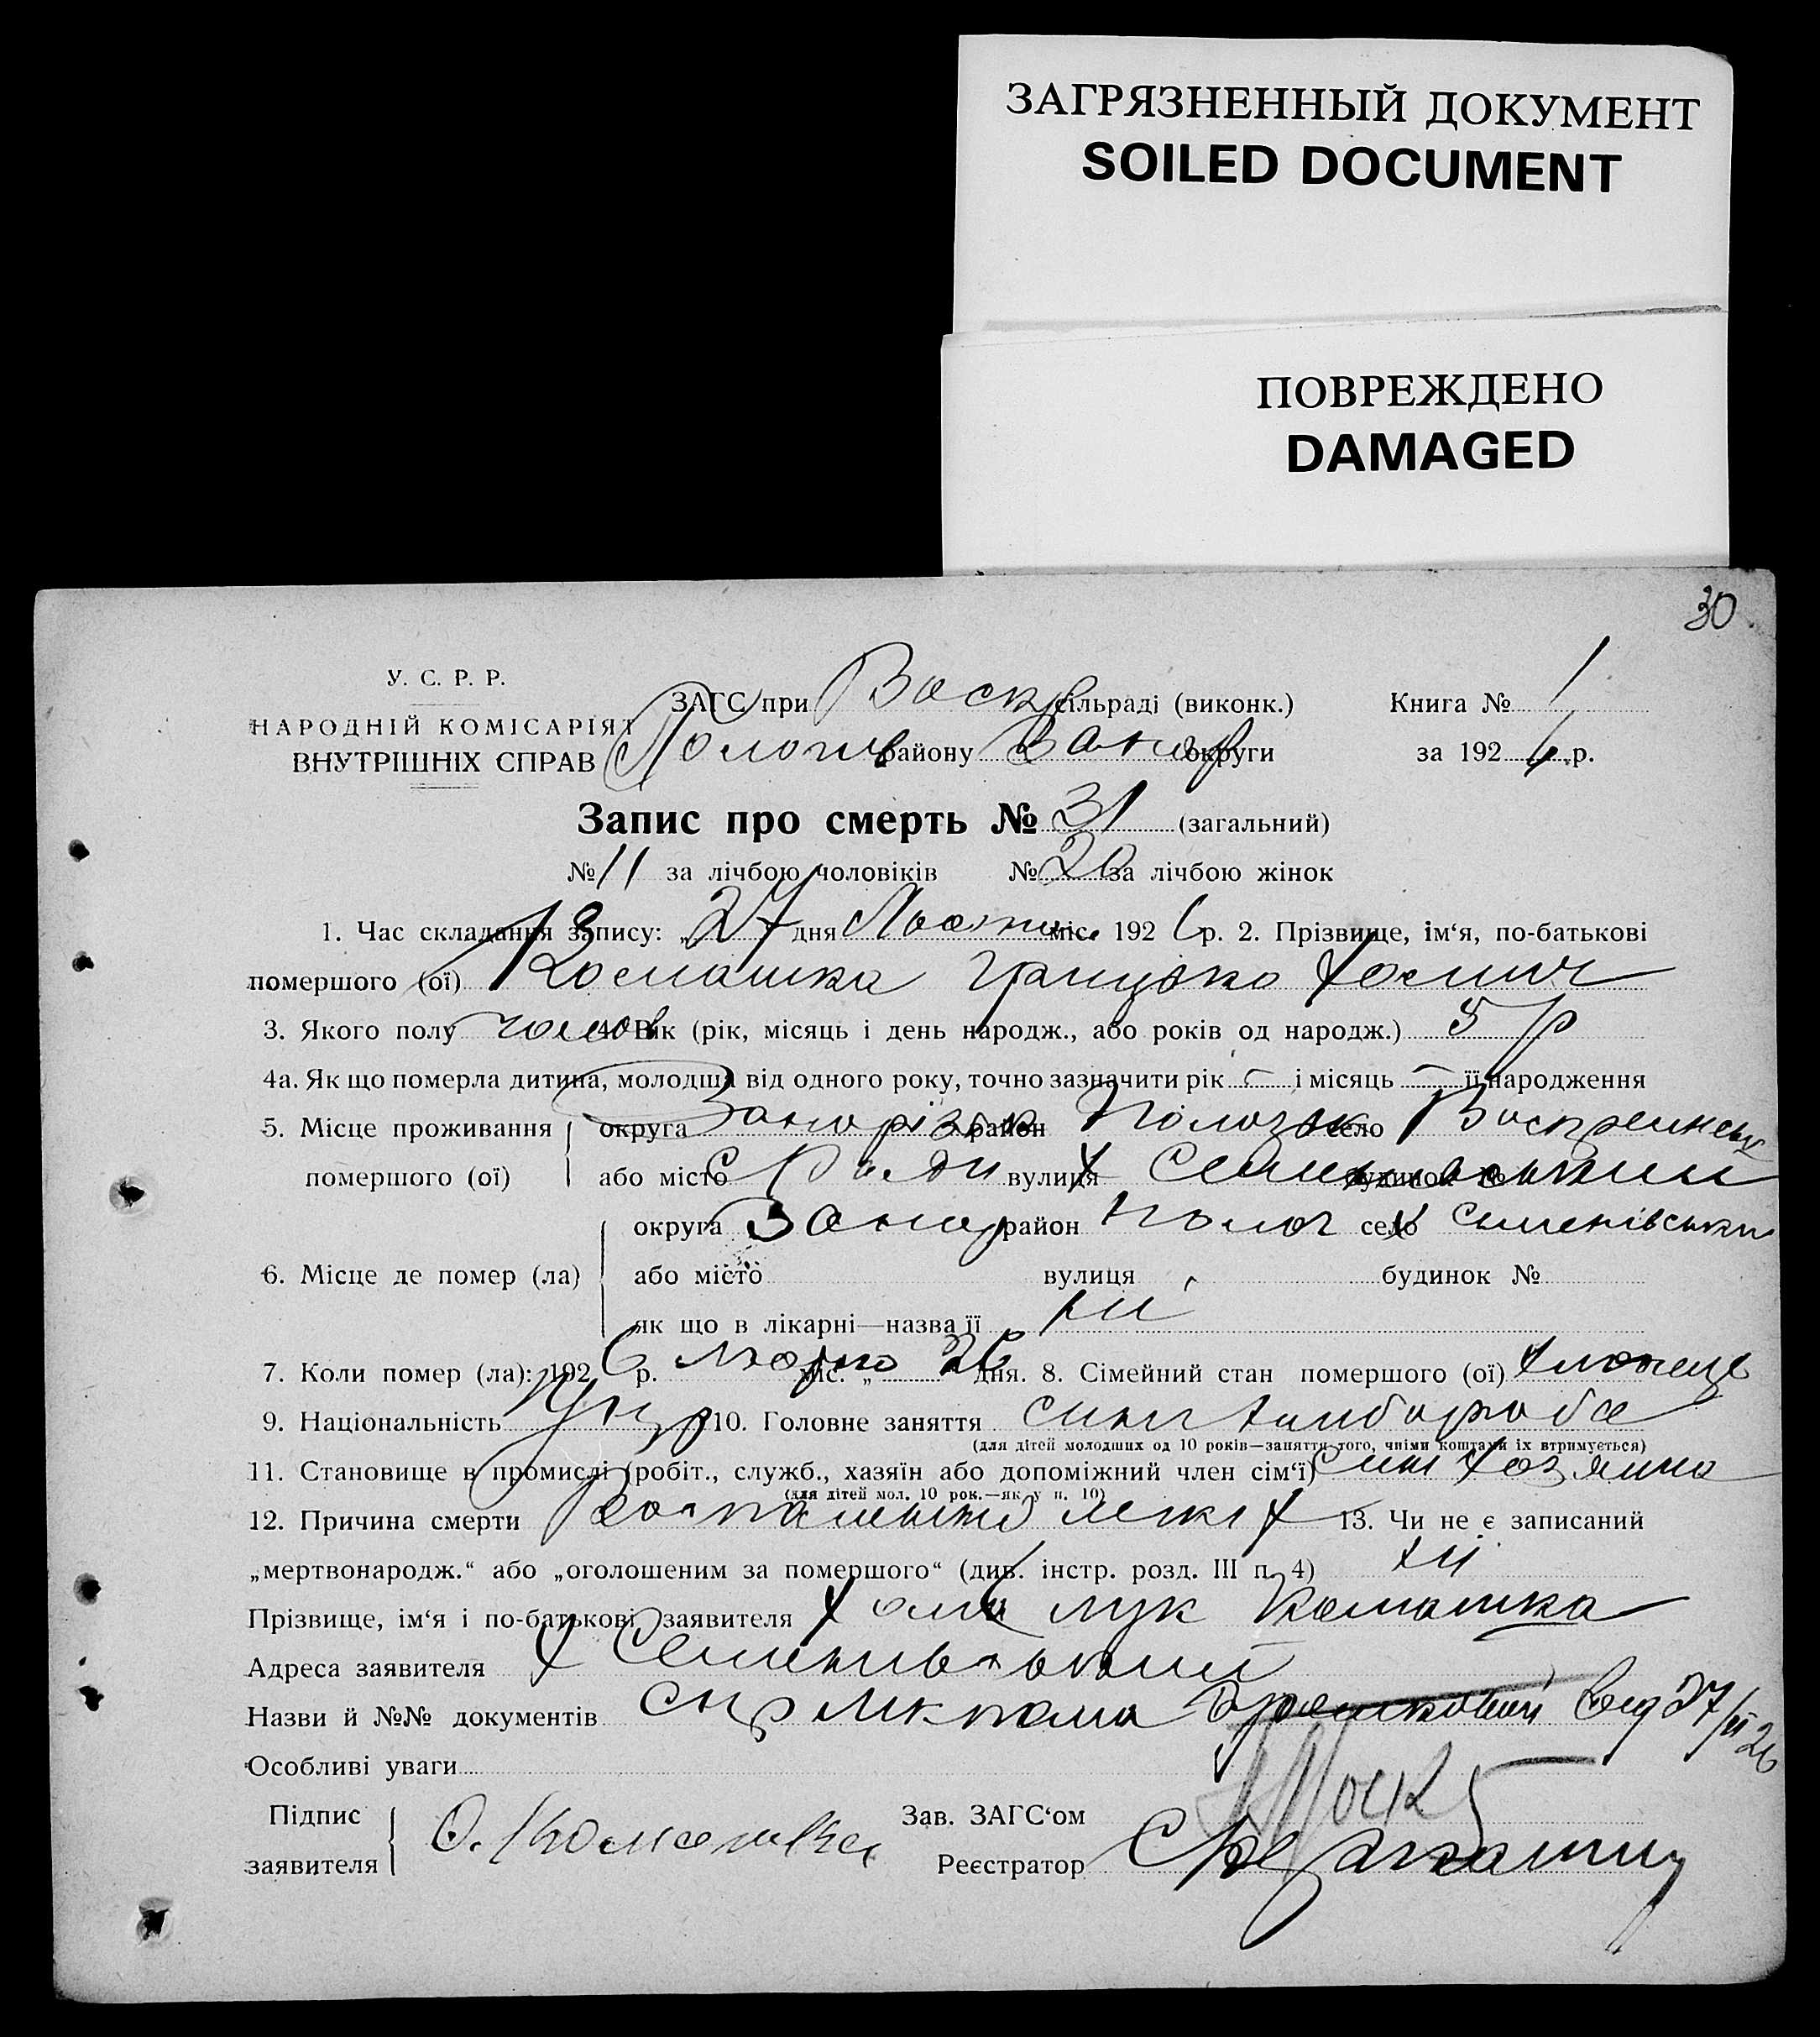 ЗАГРЯЗНЕННЫЙ ДОКУМЕНТ
SOILED DOCUMENT
ПОВРЕЖДЕНО
DAMAGED
30
У. С. Р. Р.
НАРОДНІЙ КОМІСАРІЯТ
ВНУТРІШНІХ СПРАВ
ЗАГС при Воскр сільраді (виконк.) Книга № 1
Пологів району Запор округи за 1926 р.
Запис про смерть № 31 (загальний)
№ 11 за лічбою чоловіків № 20 за лічбою жінок
1. Час складання запису: „ 27 дня міс. 1926 р. 2. Прізвище, ім‘я, по-батькові
помершого (ої) Комашка Грицько Хомич
3. Якого полу чолов 4. Вік (рік, місяць і день народж., або років од народж.) 5 р
4а. Як що померла дитина, молодша від одного року, точно зазначити рік – і місяць – її народження
5. Місце проживання округа Запоріжж район Пологівськ село
помершого (ої) або місто С Ради вулиця х Семенівський будинок №
округа Запор район Полог село х Семенівський
6. Місце де помер (ла) або місто вулиця будинок №
як що в лікарні—назва її ні
7. Коли помер (ла): 1926 р. Лютого міс. „ 26 дня. 8. Сімейний стан помершого (ої) хлопець
9. Національність Укр 10. Головне заняття син хлибороба
(для дітей молодших од 10 років—заняття того, чиїми коштами їх втримується)
11. Становище в промислі (робіт., служб., хазяїн або допоміжний член сім‘ї) Син Хозяина
(для дітей мол. 10 рок.—як у п. 10)
12. Причина смерти легких 13. Чи не є записаний
„мертвонародж.“ або „оголошеним за помершого“ (див. інстр. розд. III п. 4) ні
Прізвище, ім‘я і по-батькові заявителя Хома Лук Комашка
Адреса заявителя х Семенивський
Назви й №№ документів від 27/II 26
Особливі уваги
Підпис заявителя О. Комашка
Зав. ЗАГС‘ом
Реєстратор